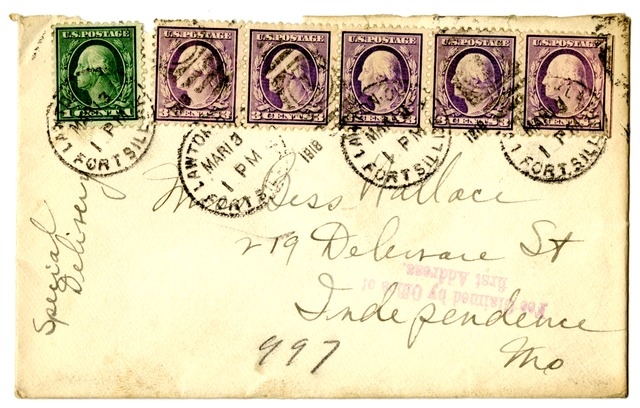 U.S. POSTAGE U.S. POSTAGE U.S. POSTAGE U.S. POSTAGE U.S. POSTAGE U.S. POSTAGE
1 CENT 3 CENTS 3 CENTS 3 CENTS 3 CENTS
LAWTON
MAR 13
1 PM
FORT SILL
1918
LAWTON
MAR 13
1 PM
FORT SILL
1918
1 PM
FORT SILL
1 PM
FORT SILL
Special
Delivery
Miss Bess Wallace
219 Delaware St
Independence
Mo
997
Fee Claimed by Office of
first Address.